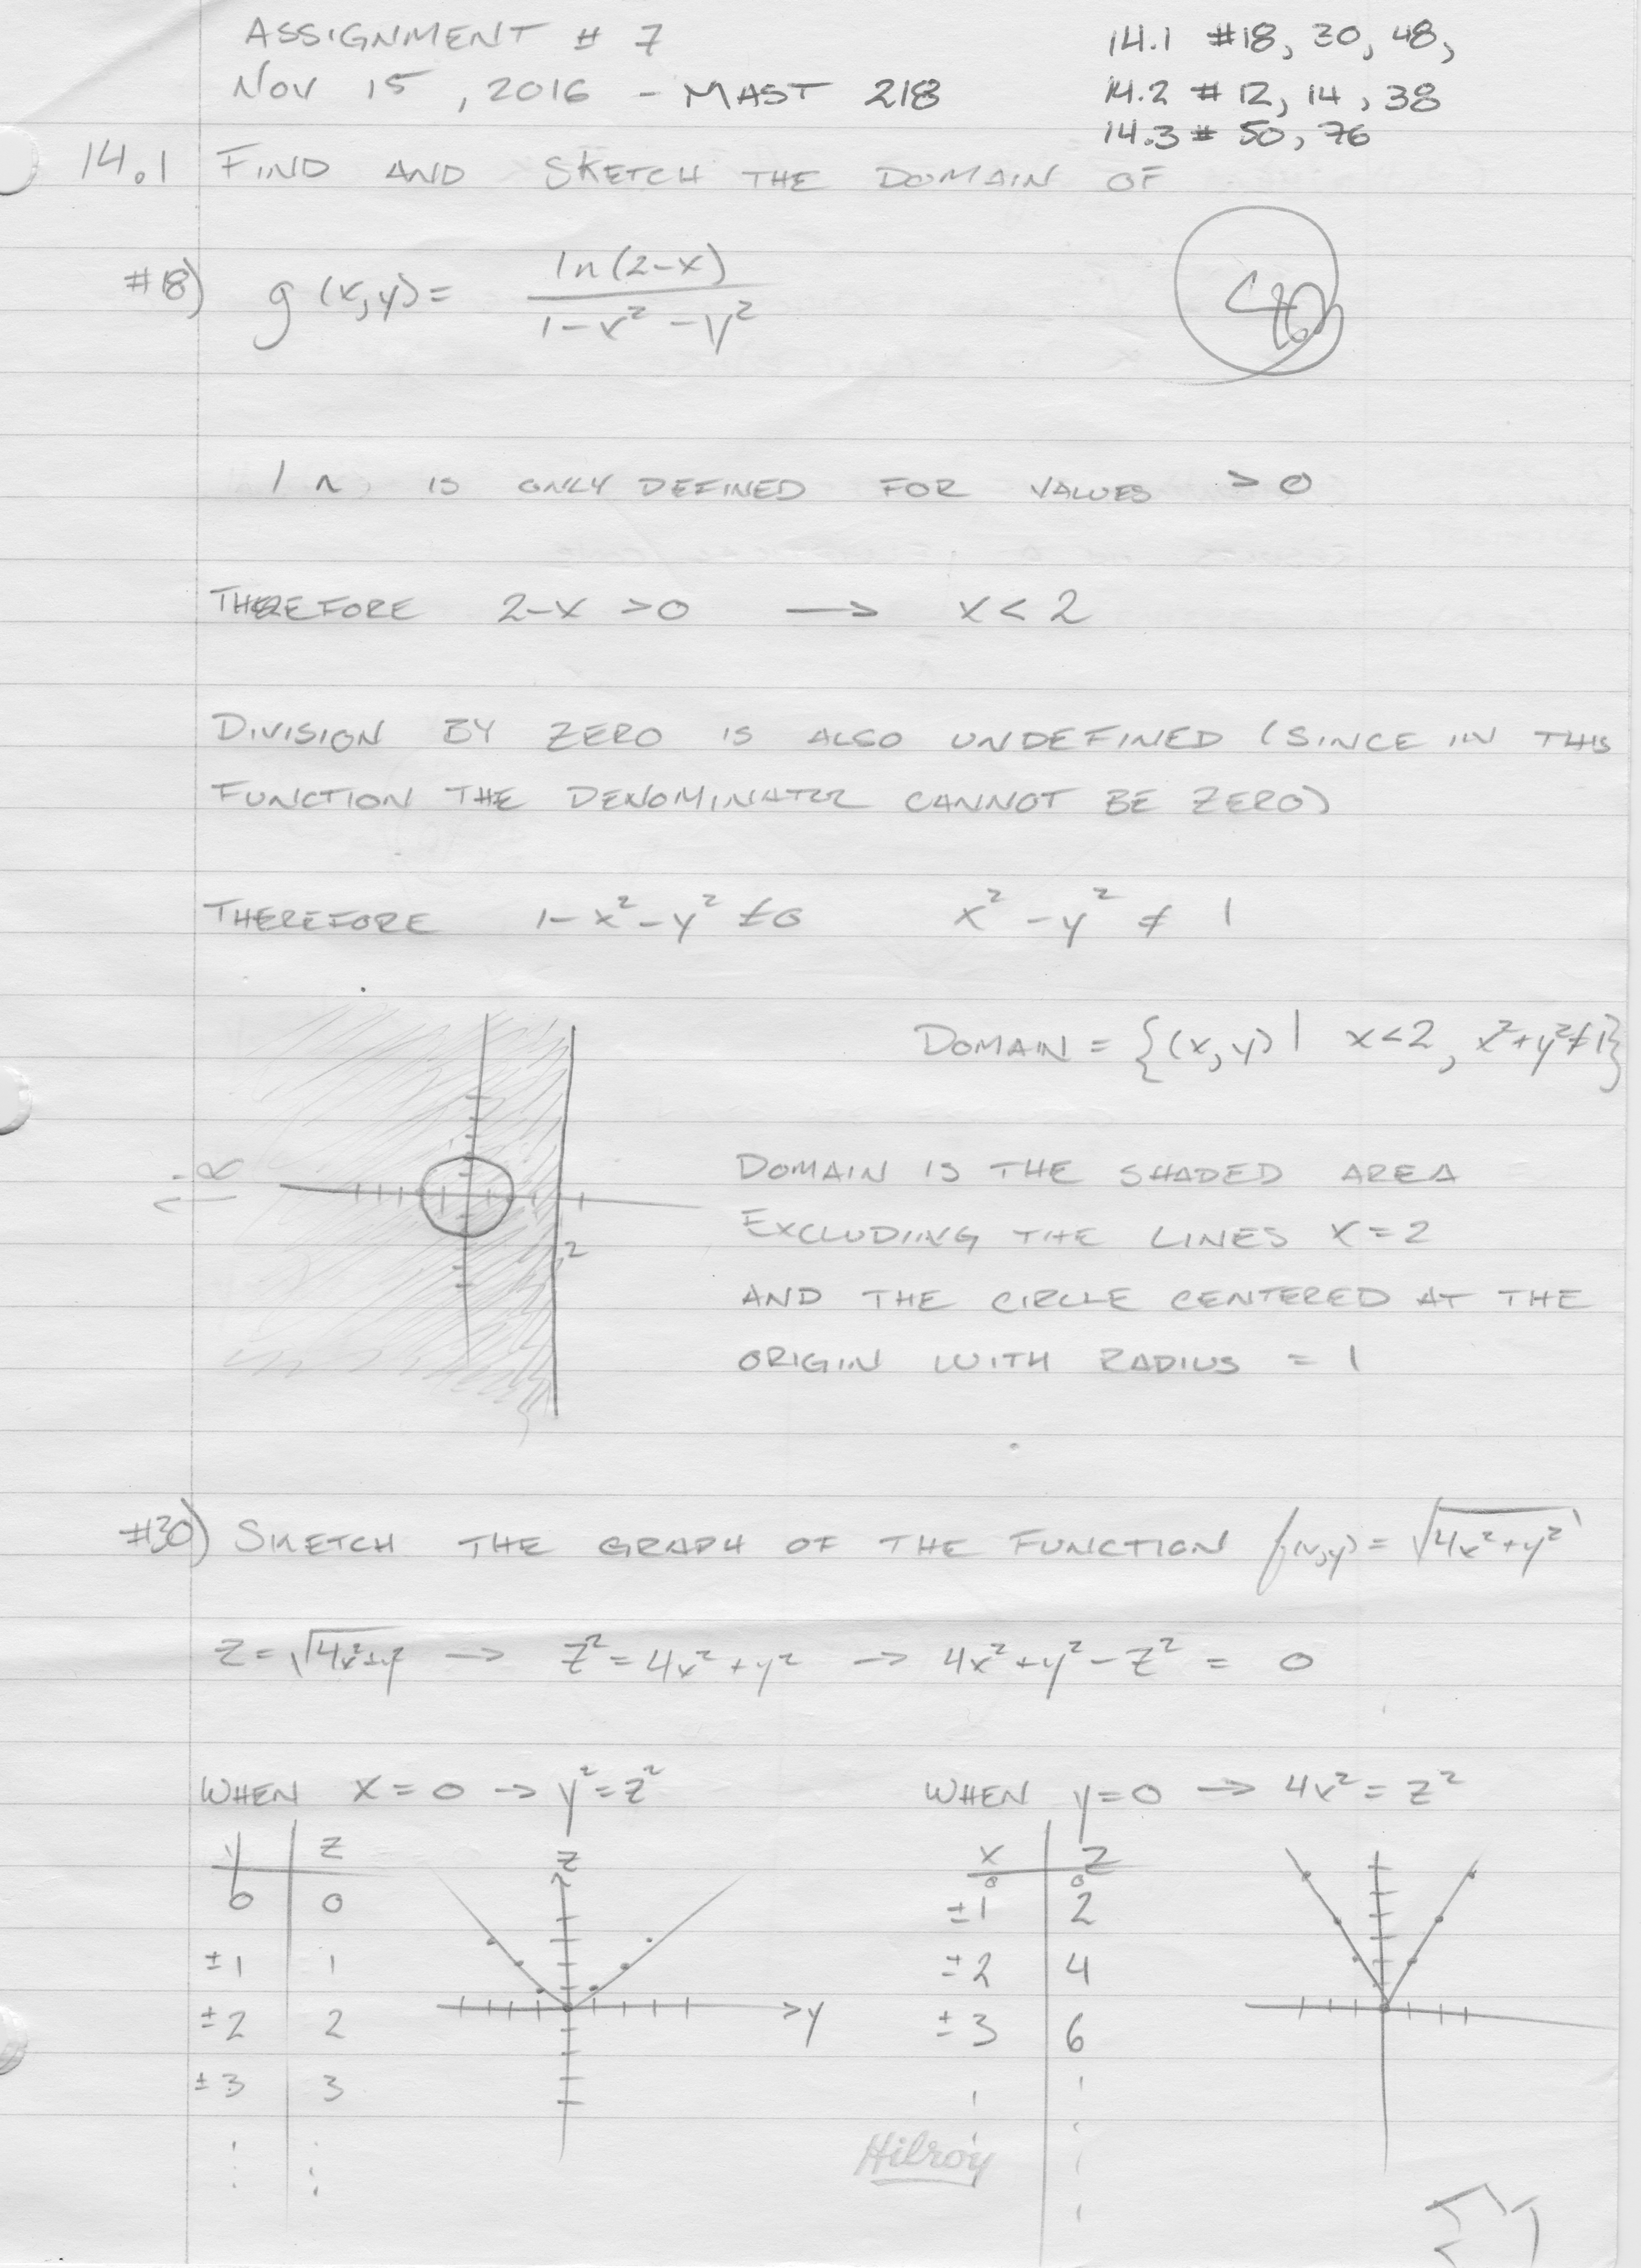 ASSIGNMENT # 7
14.1 #18, 30, 48,
NOV 15, 2016 - MAST 218
14.2 # 12, 14, 38
14.3 # 50, 76
14.1 FIND AND SKETCH THE DOMAIN OF
#18) g(x,y) = ln(2-x) / 1-x² -y²
ln IS ONLY DEFINED FOR VALUES > 0
THEREFORE 2-x >0 → x < 2
DIVISION BY ZERO IS ALSO UNDEFINED (SINCE IN THIS
FUNCTION THE DENOMINATOR CANNOT BE ZERO)
THEREFORE 1-x²-y² ≠0 x² - y² ≠ 1
DOMAIN = {(x,y) | x<2, x²+y²≠1}
DOMAIN IS THE SHADED AREA
EXCLUDING THE LINES X=2
2
AND THE CIRCLE CENTERED AT THE
ORIGIN WITH RADIUS = 1
#30) SKETCH THE GRAPH OF THE FUNCTION f(x,y) = √4x²+y²
Z = √4x²+y² → Z² = 4x² + y² → 4x² + y² - Z² = 0
WHEN X = 0 → y² = z²
WHEN y=0 → 4x² = Z²
y Z
Z
X Z
0 0
0 0
±1 1
±1 2
±2 2
±2 4
±3 3
±3 6
y
Hilroy